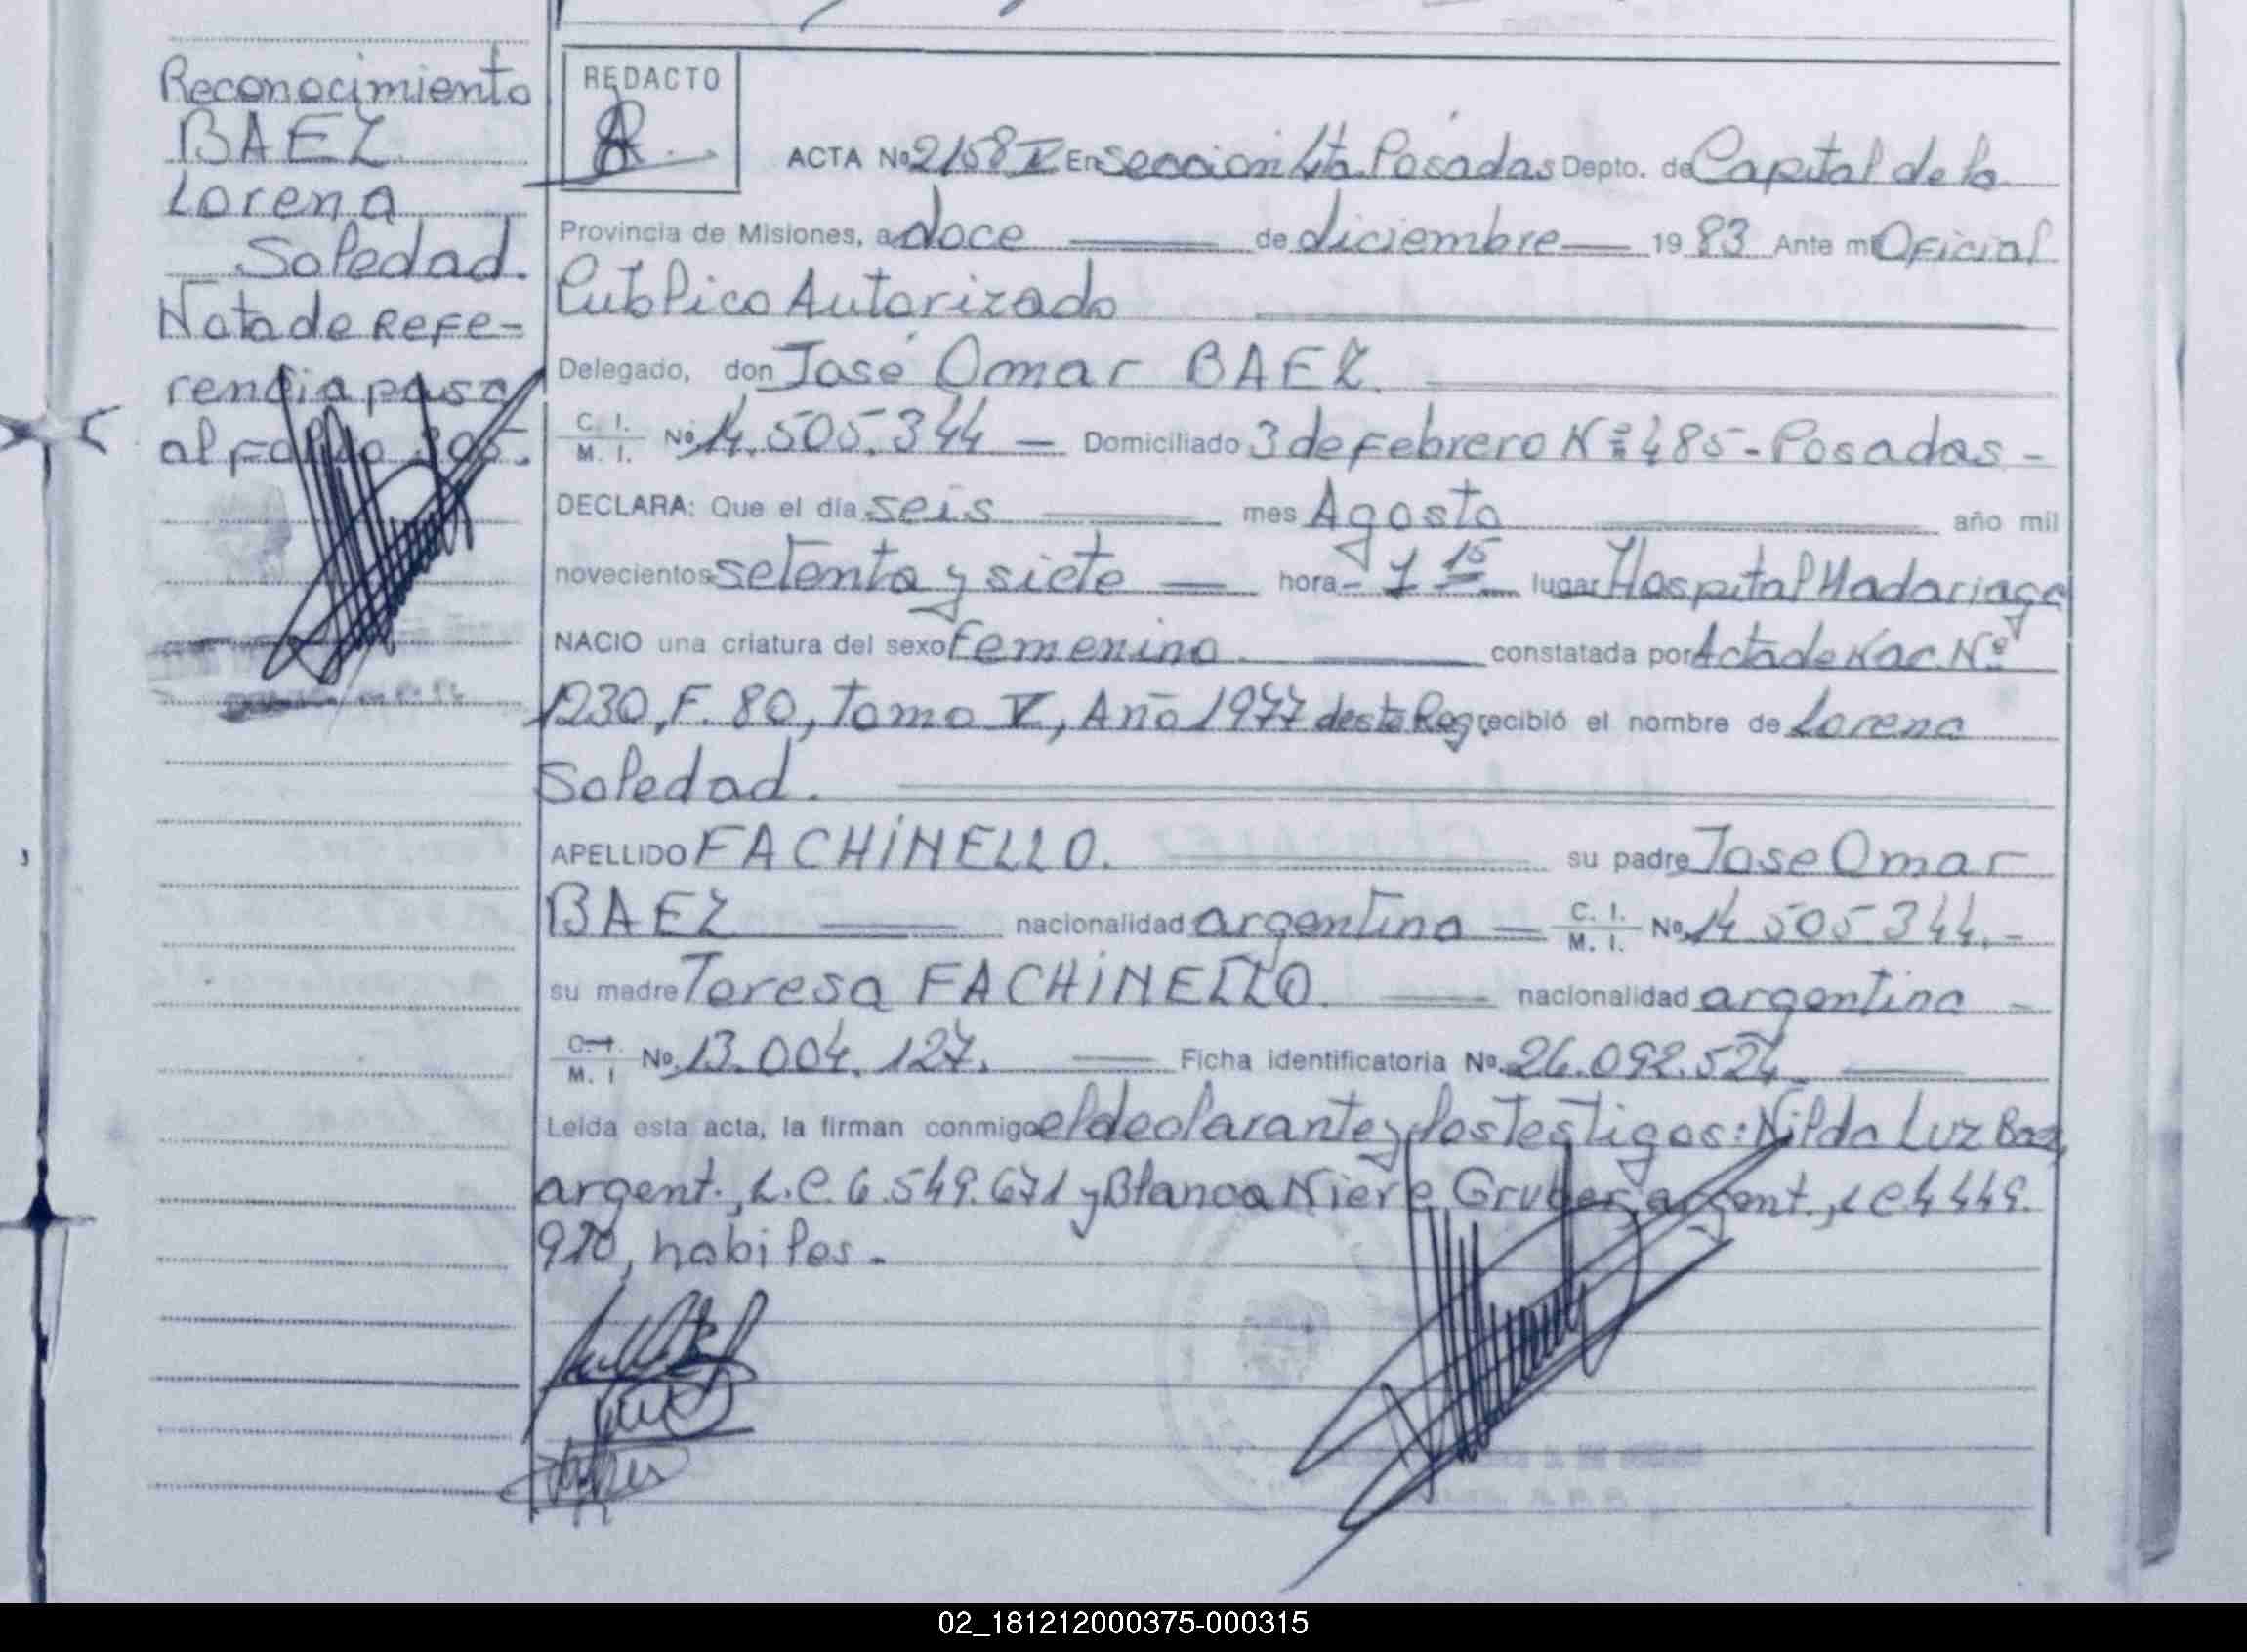 Reconocimiento
BAEZ
Lorena
Soledad.
Nota de Refe-
rencia pasa
al Folio 305.
REDACTO
ACTA Nº 2158 V En sección 4ta Posadas Depto. de Capital de la
Provincia de Misiones, a doce de diciembre 19 83 Ante mi Oficial
Publico Autorizado
Delegado, don José Omar BAEZ.
C. I. M. I. Nº 14.505.344 — Domiciliado 3 de Febrero Nº 485 - Posadas -
DECLARA: Que el día seis mes Agosto año mil
novecientos setenta y siete hora - 1 15 lugar Hospital Madariaga
NACIO una criatura del sexo Femenino. constatada por Acta de Nac. Nº
1230, F. 80, Tomo V, Año 1977 deste Reg. recibió el nombre de Lorena
Soledad.
APELLIDO FACHINELLO. su padre Jose Omar
BAEZ nacionalidad argentina — C. I. M. I. Nº 14 505 344.-
su madre Teresa FACHINELLO. nacionalidad argentina -
C. I. M. I Nº 13.004.127. Ficha identificatoria Nº 26.092.524
Leída esta acta, la firman conmigo el declarante y los testigos: Nilda Luz Baez,
argent., L.C. 6.549.671 y Blanca Nieve Gruber, argent., LC 4 449.
970, habiles.-
02_181212000375-000315